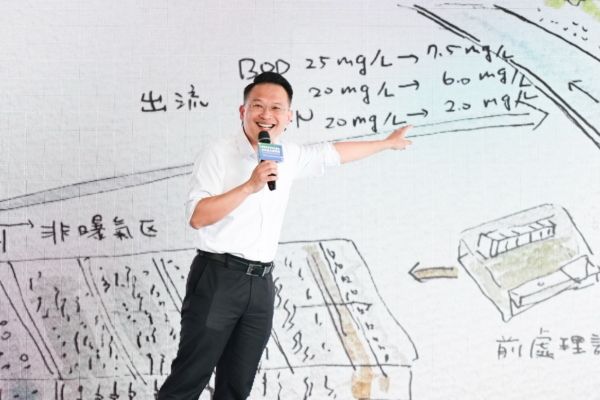 BOD 25 mg/L → 7.5 mg/L
出流 20 mg/L → 6.0 mg/L
N 20 mg/L → 2.0 mg/L
非曝氣区
前處理